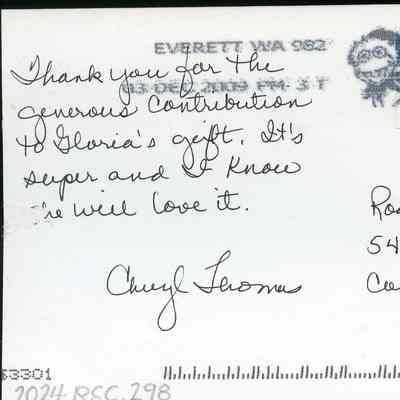 EVERETT WA 982
03 DEC 2009 PM 3 T
Thank you for the
generous contribution
to Gloria's gift. It's
super and I know
he will love it.
Cheryl Thomas
Ro
54
Co
53301
2024.RSC.298